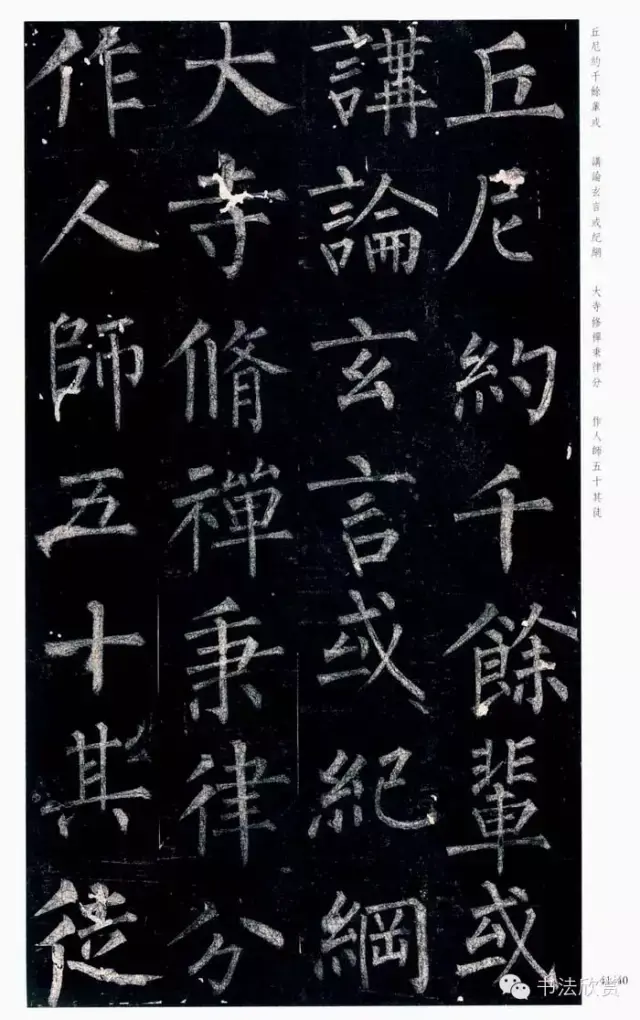 丘尼約千餘輩或
講論玄言或紀綱
大寺脩禪秉律分
作人師五十其徒
丘尼約千餘輩或 講論玄言或紀綱 大寺修禪秉律分 作人師五十其徒
41/40
书法欣赏